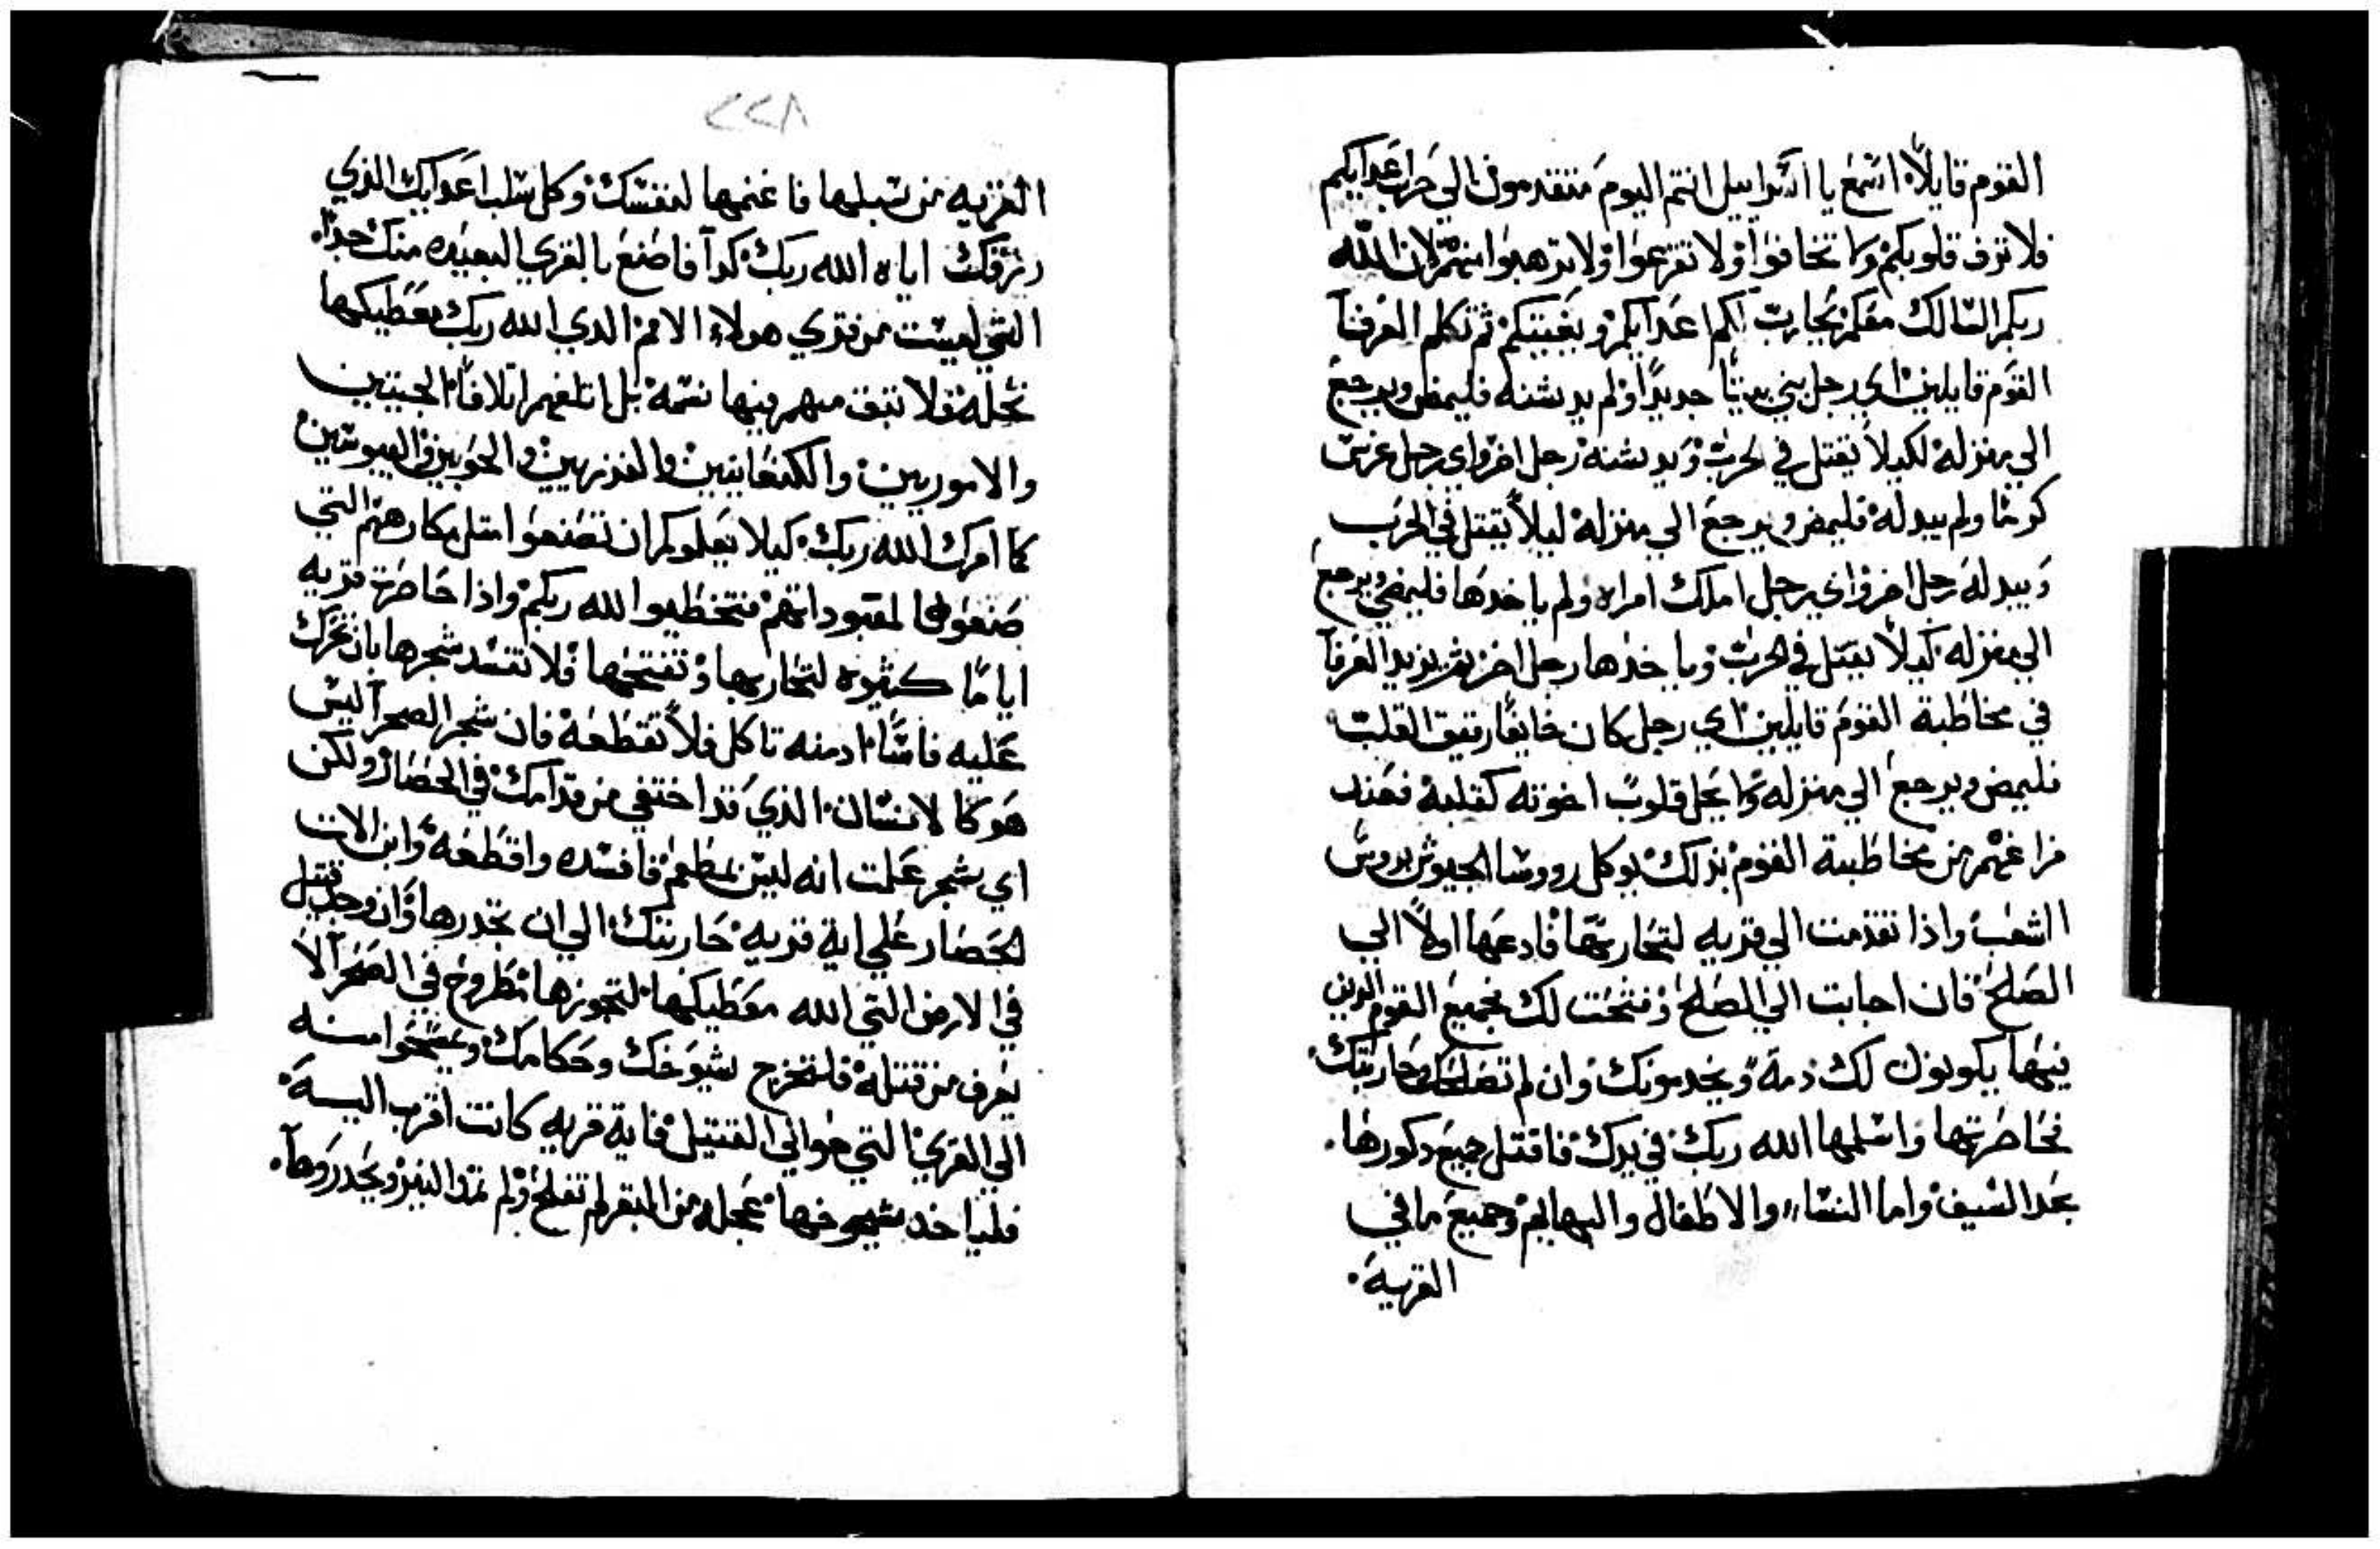 القوم قايلاً اسمع يا اسراييل انتم اليوم متقدمون الي حرب اعدايكم
فلا ترق قلوبكم ولا تخافوا ولا تفزعوا ولا ترهبوا منهم لان الله
ربكم السالك معكم يحارب لكم اعدايكم ويغيتكم ثم تكلم العرفآ
القوم قايلين اي رجل بني بيتًا جديدًا ولم يدشنه فليمض ويرجع
الي منزله لكيلا يقتل في الحرب ويدشنه رجل اخر واي رجل غرس
كرمًا ولم يبدله فليمض ويرجع الي منزله ليلا يقتل في الحرب
ويبدله رجل اخر واي رجل املك امراه ولم ياخدها فليمض ويرجع
الي منزله كيلا يقتل في الحرب وياخدها رجل اخر ثم يزيد العرفآ
في مخاطبة القوم قايلين اي رجل كان خايفًا رقيق القلب
فليمض ويرجع الي منزله ولا يحل قلوب اخوته كقلبه فعند
فراغهم من مخاطبة القوم بذلك يوكل رووسا الجيوش بروس
الشعب واذا تقدمت الي قريه لتحاربها فادعها اولاً الي
الصلح فان اجابت الي الصلح وفتحت لك فجميع القوم الدين
فيها يكونون لك ذمة ويخدمونك وان لم تصالحك وحاربتك
فحاصرتها واسلمها الله ربك في يدك فاقتل جميع دكورها
بحد السيف واما النسا والاطفال والبهايم وجميع ما في
القرية
٢٢٨
القريه من سبلها فاغنمها لنفسك وكل سلب اعدايك الذي
رزقك اياه الله ربك كدآ فاصنع بالقري البعيده منك جدًا
التي ليست من قري هولاء الامم الدي الله ربك معطيكها
نحله فلا تبق منهم فيها نسمة بل اتلفهم اتلافًا الحيتيين
والاموريين والكنعانيين والفزريين والحويين واليبوسين
كما امرك الله ربك كيلا يعلموكم ان تصنعوا متل مكارههم التي
صنعوها لمعبوداتهم فتخطيوا الله ربكم واذا حاصرت قريه
ايامًا كثيره لتحاربها وتفتحها فلا تفسد شجرها بان تحرك
عليه فاسًا اد منه تاكل فلا تقطعه فان شجر الصحرآ ليس
هو كالانسان الذي قد اختفي من قدامك في الحصار ولكن
اي شجر علمت انه ليس بمطعم فافسده واقطعه وابن الات
الحصار علي اية قريه حاربتك الي ان تحدرها وان وجد قتيل
في الارض التي الله معطيكها لتحوزها مطروح في الصحرآ لا
يعرف من قتله فلتخرج شيوخك وحكامك ويمسحوا منه
الي القري التي حوالي القتيل فاية قريه كانت اقرب اليه
فلياخد شيوخها عجله من البقر لم تفلح ولم تمد النير ويحدروها